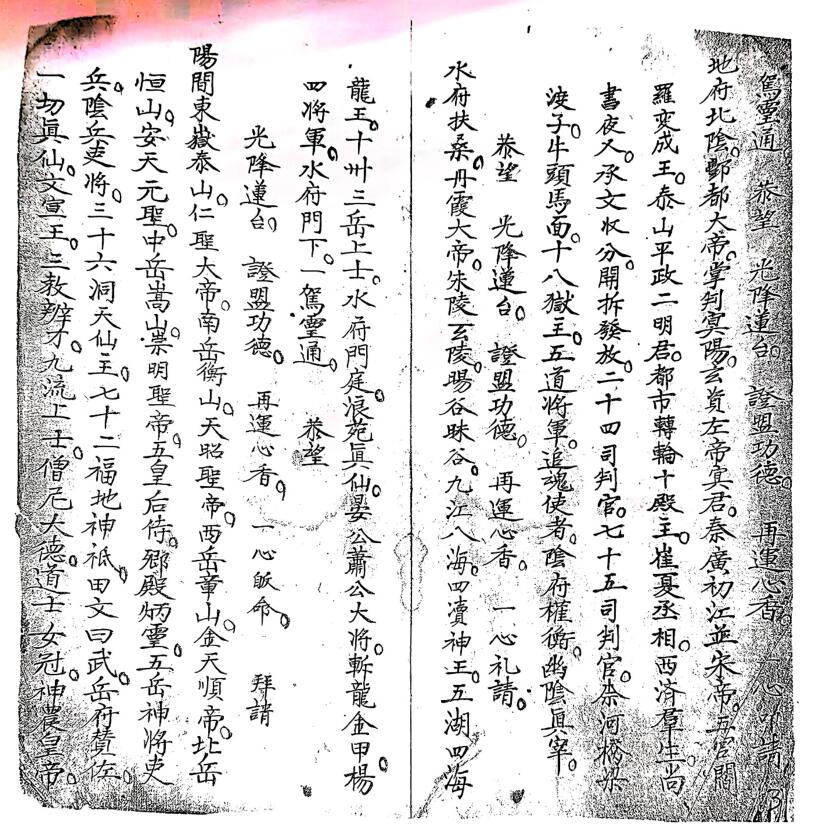 駕靈通　恭望　光降蓮台。　證盟功德。　再運心香。　一心叩請
地府北陰。酆都大帝。掌判冥陽。玄資左帝冥君。秦廣初江並宋帝。五官閻
羅变成王。泰山平政二明君。都市轉輪十殿主。崔夏丞相。西濟羣生。尚
書夜又。承文收分。開拆發放。二十四司判官。七十五司判官。奈河橋梁
渡子。牛頭馬面。十八獄王。五道將軍。追魂使者。陰府權衡。幽陰真宰。
恭望　光降蓮台。　證盟功德。　再運心香。　一心礼請。
水府扶桑。丹霞大帝。朱陵玄陵。暘谷昧谷。九江八海。四瀆神王。五湖四海
龍王。十卅三岳上士。水府門庭。浪苑真仙。晏公蕭公大将。斬龍金甲楊
四将軍。水府門下。一駕靈通。　恭望
光降蓮台。　證盟功德。　再運心香。　一心皈命。　拜請
陽間東嶽泰山。仁聖大帝。南岳衡山。天昭聖帝。西岳華山。金天順帝。北岳
恒山。安天元聖。中岳嵩山。崇明聖帝。五皇后侍。郷殿炳靈。五岳神將吏
兵。陰兵吏将。三十六洞天仙主。七十二福地神祇。田文曰武。岳府贊佐。
一切真仙。文宣王。三教辨才。九流上士。僧尼大德。道士女冠。神農皇帝。